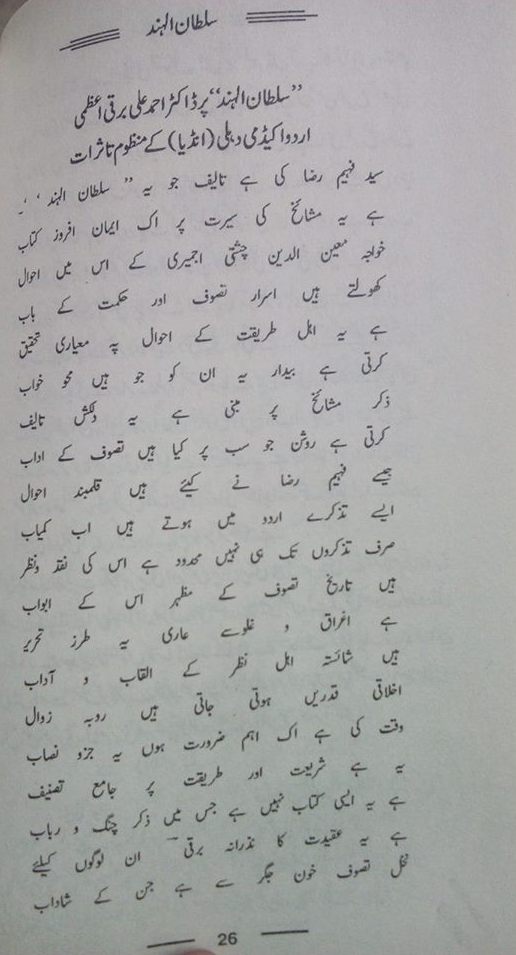 سلطان الہند
”سلطان الہند“ پر ڈاکٹر احمد علی برقی اعظمی
اردو اکیڈمی دہلی (انڈیا) کے منظوم تاثرات
سید فہیم رضا کی ہے تالیف جو یہ ”سلطان الہند‘‘۔
ہے یہ مشائخ کی سیرت پر اک ایمان افروز کتاب
خواجہ معین الدین چشتی اجمیری کے اس میں احوال
کھولتے ہیں اسرار تصوف اور حکمت کے باب
ہے یہ اہل طریقت کے احوال پہ معیاری تحقیق
کرتی ہے بیدار یہ ان کو جو ہیں محو خواب
ذکر مشائخ پر مبنی ہے یہ دلکش تالیف
کرتی ہے روشن جو سب پر کیا ہیں تصوف کے اداب
جیسے فہیم رضا نے کیئے ہیں قلمبند احوال
ایسے تذکرے اردو میں ہوتے ہیں اب کمیاب
صرف تذکروں تک ہی نہیں محدود ہے اس کی نقد ونظر
ہیں تاریخ تصوف کے مظہر اس کے ابواب
ہے اغراق و غلوسے عاری یہ طرز تحریر
ہیں شائستہ اہل نظر کے القاب و آداب
اخلاقی قدریں ہوتی جاتی ہیں روبہ زوال
وقت کی ہے اک اہم ضرورت ہوں یہ جزو نصاب
یہ ہے شریعت اور طریقت پر جامع تصنیف
ہے یہ ایسی کتاب نہیں ہے جس میں ذکر چنگ و رباب
ہے یہ عقیدت کا نذرانہ برقی ان لوگوں کیلئے
نخل تصوف خون جگر سے ہے جن کے شاداب
26